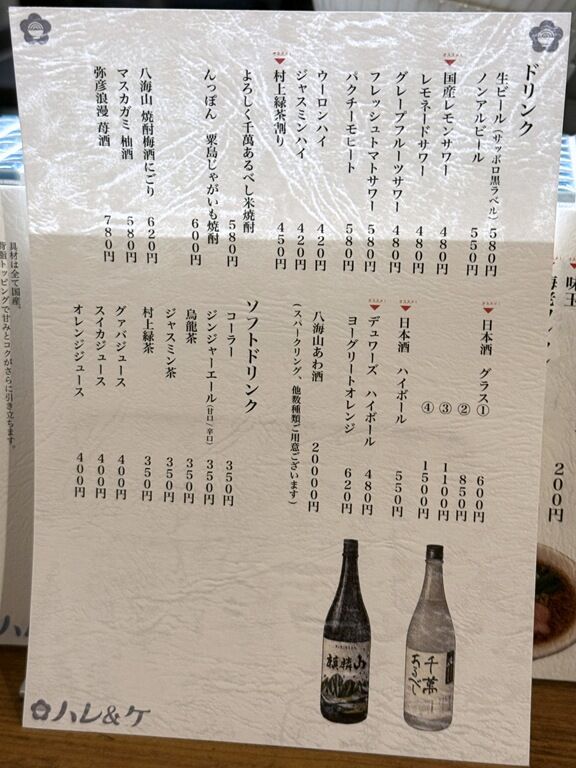 ドリンク
生ビール(サッポロ黒ラベル) 580円
ノンアルビール 550円
オススメ!
国産レモンサワー 480円
レモネードサワー 480円
グレープフルーツサワー 480円
フレッシュトマトサワー 580円
パクチーモヒート 580円
ウーロンハイ 420円
ジャスミンハイ 420円
オススメ!
村上緑茶割り 450円
よろしく千萬あるべし米焼酎 580円
んっぽん 粟島じゃがいも焼酎 600円
八海山 焼酎梅酒にごり 620円
マスカガミ 柚酒 580円
弥彦浪漫 苺酒 780円
オススメ!
日本酒 グラス① 600円
② 850円
③ 1100円
④ 1500円
オススメ!
日本酒 ハイボール 550円
オススメ!
デュワーズ ハイボール 480円
ヨーグリートオレンジ 620円
八海山あわ酒 20000円
(スパークリング、他数種類ご用意ございます)
ソフトドリンク
コーラー 350円
ジンジャーエール(甘口/辛口) 350円
烏龍茶 350円
ジャスミン茶 350円
村上緑茶 350円
グァバジュース 400円
スイカジュース 400円
オレンジジュース 400円
麒麟山
千萬
あるべし
ハレ&ケ
具材は全て国産。
背脂トッピングで甘みとコクがさらに引き立ちます。
ハレ
味玉
200円